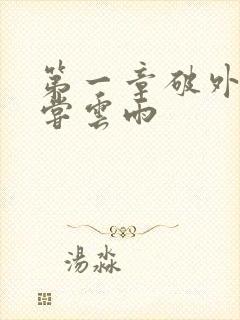 第一章破外
嘗雲雨
湯淼